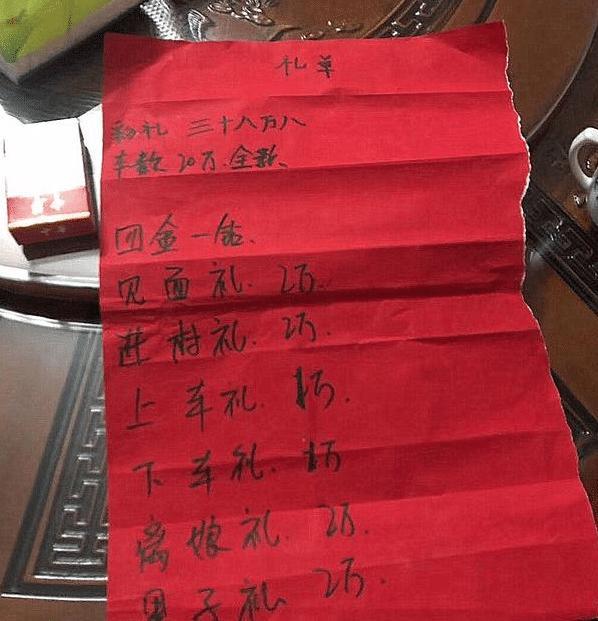 礼单
彩礼 三十八万八
车款 20万.全款、
四金一钻.
见面礼. 2万.
进村礼. 2万.
上车礼. 1万.
下车礼. 1万
离娘礼. 2万.
子礼. 2万.